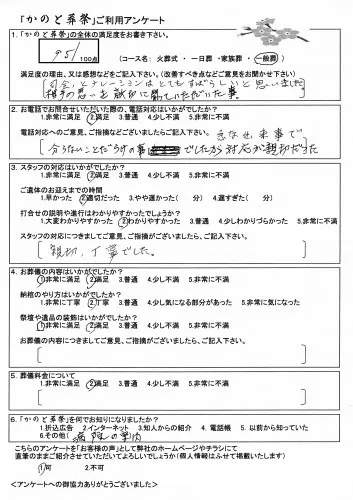 「かのと葬祭」ご利用アンケート
1.「かのと葬祭」の全体の満足度をお書き下さい。
95 /100点 (コース名: 火葬式 ・ 一日葬 ・ 家族葬 ・ 一般葬)
満足度の理由、又は感想などをご記入下さい。(改善すべき点などご意見をお聞かせ下さい)
司会、ナレーションはとてもすばらしいと思いました
相手の思いを親切に聞いていただいた事。
2. お電話でお問合せいただいた際の、電話対応はいかがでしたか?
1.非常に満足 2.満足 3.普通 4.少し不満 5.非常に不満
電話対応へのご意見、ご指摘などございましたらご記入下さい。 急な出来事で、
分らないことだらけの事でしたが対応が親切だった
3. スタッフの対応はいかがでしたか?
1.非常に満足 2.満足 3.普通 4.少し不満 5.非常に不満
ご遺体のお迎えまでの時間
1.早かった 2.適切だった 3.やや遅かった( 分) 4.遅すぎた( 分)
打合せの説明や進行はわかりやすかったでしょうか?
1.大変わかりやすかった 2.わかりやすかった 3.普通 4.少しわかりづらかった 5.非常に不満
スタッフの対応につきましてご意見、ご指摘がございましたら、ご記入下さい。
親切、丁寧でした。
4. お葬儀の内容はいかがでしたか?
1.非常に満足 2.満足 3.普通 4.少し不満 5.非常に不満
納棺のやり方はいかがでしたか?
1.非常に丁寧 2.丁寧 3.普通 4.少し気になる部分があった 5.非常に気になった
祭壇や遺品の装飾はいかがでしたか?
1.非常に満足 2.満足 3.普通 4.少し不満 5.非常に不満
お葬儀の内容につきましてご意見、ご指摘がございましたら、ご記入下さい。
5. 葬儀料金について
1.非常に満足 2.満足 3.普通 4.少し不満 5.非常に不満
6.「かのと葬祭」を何でお知りになりましたか?
1.折込広告 2.インターネット 3.知人からの紹介 4.電話帳 5.以前から知っていた
6.その他( 病院の案内
こちらのアンケートを「お客様の声」として弊社のホームページやチラシにて
直筆のままご紹介させていただいてよろしいでしょうか(個人情報はふせて掲載いたします)
1.可 2.不可
<アンケートへの御協力ありがとうございました>